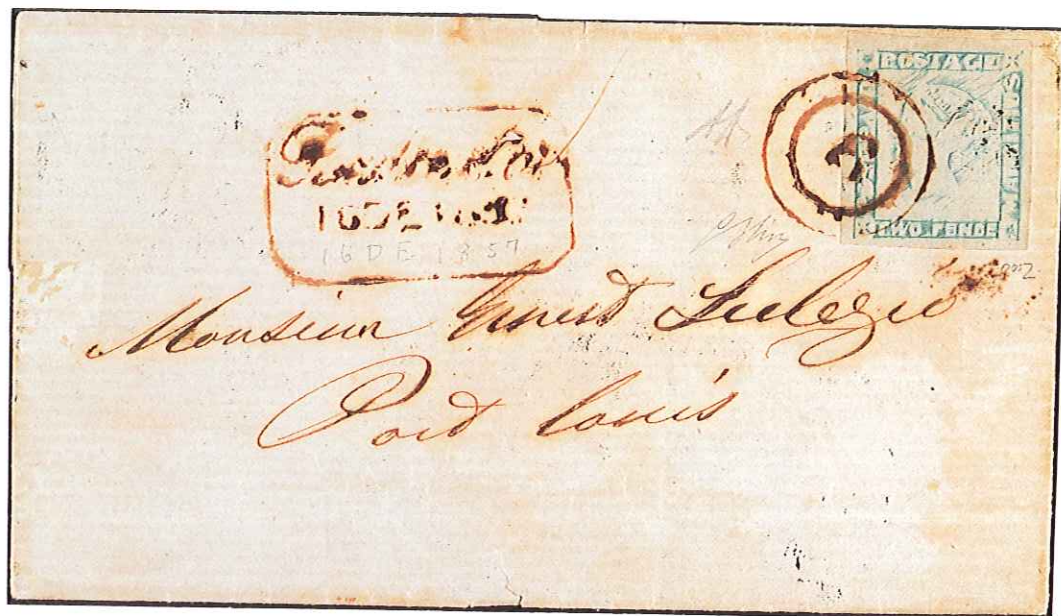 POSTAGE
MAURITIUS
TWO PENCE
16 DE
16 DE 1857
Monsieur Ernest Leclezio
Port Louis